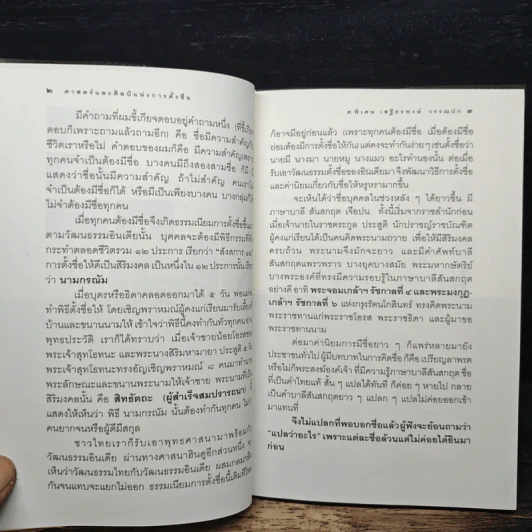 ๒ ศาสตร์และศิลป์แห่งการตั้งชื่อ
มีคำถามที่ผมขี้เกียจตอบอยู่คำถามหนึ่ง (ที่ขี้เกียจ
ตอบก็เพราะถามแล้วถามอีก) คือ ชื่อมีความสำคัญกับ
ชีวิตเราหรือไม่ คำตอบของผมก็คือ มีความสำคัญเพราะ
ทุกคนจำเป็นต้องมีชื่อ บางคนมีถึงสองสามชื่อ ก็มี
แสดงว่าชื่อนั้นมีความสำคัญ ถ้าไม่สำคัญ คนเราไม่
จำเป็นต้องมีชื่อก็ได้ หรือมีเป็นเพียงบางคน บางกลุ่มก็ได้
ไม่จำต้องมีชื่อทุกคน
เมื่อทุกคนต้องมีชื่อจึงเกิดธรรมเนียมการตั้งชื่อขึ้น
ตามวัฒนธรรมอินเดียนั้น บุคคลจะต้องมีพิธีกรรมที่ต้อง
กระทำตลอดชีวิตรวม ๑๒ ประการ เรียกว่า "สังสการ ๑๒"
การตั้งชื่อให้ดีเป็นสิริมงคล เป็นหนึ่งใน ๑๒ ประการนั้น เรียก
ว่า นามกรณัม
เมื่อบุตรหรือธิดาคลอดออกมาได้ ๕ วัน พ่อแม่จะ
ทำพิธีตั้งชื่อให้ โดยเชิญพราหมณ์ผู้คงแก่เรียนมารับเลี้ยงที่
บ้านและขนานนามให้ เข้าใจว่าพิธีนี้คงทำกันทั่วทุกคน
พุทธประวัติ เราก็ได้ทราบว่า เมื่อเจ้าชายน้อยโอรสของ
พระเจ้าสุทโธทนะ และพระนางสิริมหามายา ประสูติ ๕ วัน
พระเจ้าสุทโธทนะทรงอัญเชิญพราหมณ์ ๘ คนมาทำนาย
พระลักษณะและขนานพระนามให้เจ้าชาย พระนามที่เป็น
สิริมงคลนั้น คือ สิทธัตถะ (ผู้สำเร็จสมปรารถนา)
แสดงให้เห็นว่า พิธี นามกรณัม นั้นต้องทำกันทุกคน ไม่
คนยากจนหรือผู้ดีมีสกุล
ชาวไทยเราก็รับเอาพุทธศาสนามาพร้อมกับ
วัฒนธรรมอินเดีย ผ่านทางศาสนาฮินดูอีกส่วนหนึ่ง
เห็นว่าวัฒนธรรมไทยกับวัฒนธรรมอินเดีย ผสมกลมกลืน
กันจนแทบจะแยกไม่ออก ธรรมเนียมการตั้งชื่อนี้เดิมทีไทย
ศ.พิเศษ เสฐียรพงษ์ วรรณปก ๓
ก็อาจมีอยู่ก่อนแล้ว (เพราะทุกคนต้องมีชื่อ เมื่อต้องมีชื่อ
ย่อมต้องมีการตั้งชื่อให้กัน) แต่คงจะทำกันง่าย ๆ เช่น ตั้งชื่อว่า
นายมี นางมา นายหมู นางแมว อะไรทำนองนั้น ต่อเมื่อ
รับเอาวัฒนธรรมตั้งชื่อของอินเดียมา จึงพัฒนาวิธีการตั้งชื่อ
และค่านิยมเกี่ยวกับชื่อให้หรูหรามากขึ้น
จะเห็นได้ว่าชื่อบุคคลในช่วงหลัง ๆ ได้ยาวขึ้น มี
ภาษาบาลี สันสกฤต เจือปน ทั้งนี้เริ่มจากราชสำนักก่อน
เมื่อเจ้านายในราชตระกูล ประสูติ นักปราชญ์ราชบัณฑิต
ผู้คงแก่เรียนได้เป็นคนคิดพระนามถวาย เพื่อให้มีสิริมงคล
ครบถ้วน พระนามจึงมักจะยาว และมีคำศัพท์บาลี
สันสกฤตแพรวพราว บางยุคบางสมัย พระมหากษัตริย์
บางพระองค์ที่ทรงมีความรอบรู้ในภาษาบาลีสันสกฤต
อย่างดี อาทิ พระจอมเกล้าฯ รัชกาลที่ ๔ และพระมงกุฎ-
เกล้าฯ รัชกาลที่ ๖ แห่งกรุงรัตนโกสินทร์ ทรงคิดพระนาม
พระราชทานแก่พระราชโอรส พระราชธิดา และผู้มาขอ
พระราชทานนาม
ต่อมาค่านิยมการมีชื่อยาว ๆ ก็แพร่หลายมายัง
ประชาชนทั่วไป ผู้มีบทบาทในการคิดชื่อ ก็คือ เปรียญลาพรต
หรือไม่ก็พระสงฆ์องค์เจ้า ที่มีความรู้ภาษาบาลีสันสกฤต ชื่อ
ที่เป็นคำไทยแท้ สั้น ๆ แปลได้ทันที ก็ค่อย ๆ หายไป กลาย
เป็นคำบาลีสันสกฤตยาว ๆ แปลก ๆ แปลไม่ค่อยออกเข้า
มาแทนที่
จึงไม่แปลกที่พอบอกชื่อแล้วผู้ฟังจะย้อนถามว่า
"แปลว่าอะไร" เพราะแต่ละชื่อล้วนแต่ไม่ค่อยได้ยินมา
ก่อน